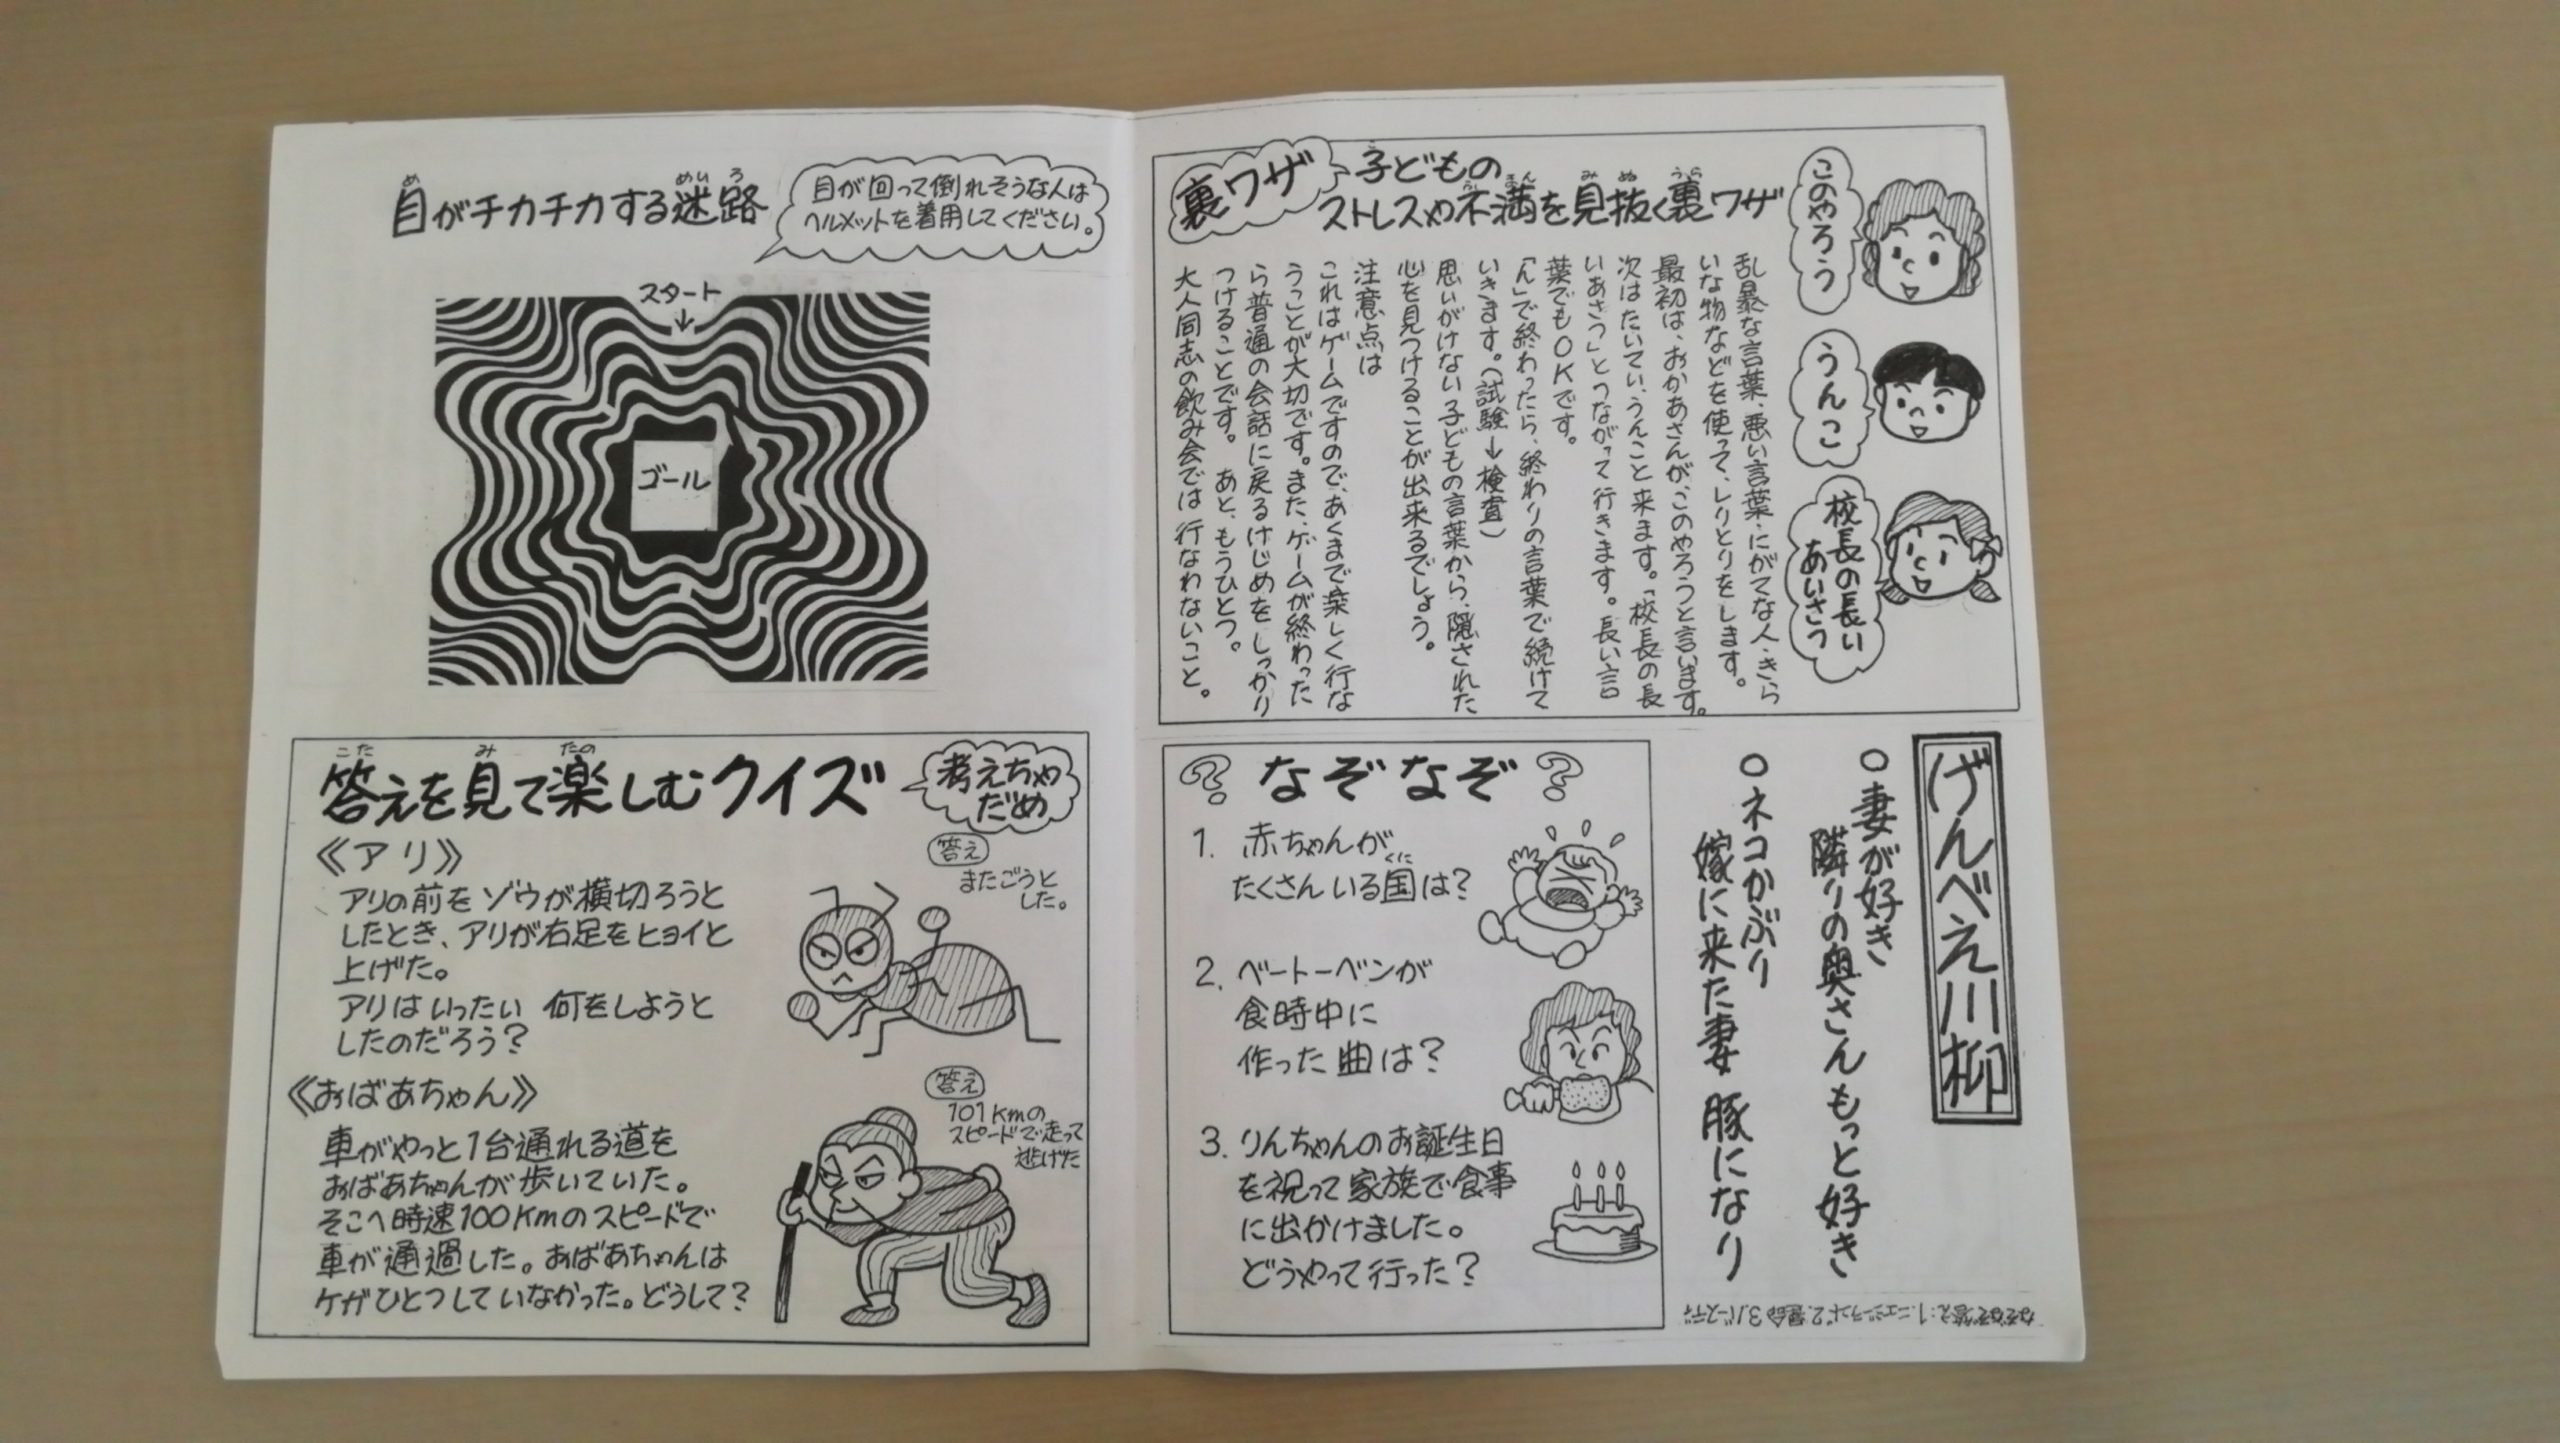 裏ワザ
子どもの
ストレスや不満を見抜く裏ワザ
このやろう
うんこ
校長の長い
あいさつ
乱暴な言葉、悪い言葉・にがてな人・きら
いな物などを使って、しりとりをします。
最初は、おかあさんが、このやろうと言います。
次はたいてい、うんこと来ます。「校長の長
いあさつ」とつながって行きます。長い言
葉でもOKです。
「ん」で終わったら、終わりの言葉で続けて
いきます。(試験→検査)
思いがけない子どもの言葉から、隠された
心を見つけることが出来るでしょう。
注意点は
これはゲームですので、あくまで楽しく行な
うことが大切です。また、ゲームが終わった
ら普通の会話に戻るけじめをしっかり
つけることです。あと、もうひとつ。
大人同志の飲み会では行なわないこと。
げんべえ川柳
○妻が好き
隣りの奥さんもっと好き
○ネコかぶり
嫁に来た妻 豚になり
? なぞなぞ ?
1. 赤ちゃんが
たくさんいる国は?
2. ベートーベンが
食時中に
作った曲は?
3. りんちゃんのお誕生日
を祝って家族で食事
に出かけました。
どうやって行った?
なぞなぞ答え:1.ニュージーランド 2.運命 3.バースデイ
目がチカチカする迷路
目が回って倒れそうな人は
ヘルメットを着用してください。
スタート
↓
ゴール
答えを見て楽しむクイズ
考えちゃ
だめ
《アリ》
アリの前をゾウが横切ろうと
したとき、アリが右足をヒョイと
上げた。
アリはいったい 何をしようと
したのだろう?
答え
またごうと
した。
《おばあちゃん》
車がやっと1台通れる道を
おばあちゃんが歩いていた。
そこへ時速100Kmのスピードで
車が通過した。おばあちゃんは
ケガひとつしていなかった。どうして?
答え
101Kmの
スピードで走って
逃げた